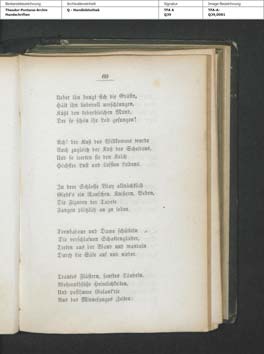 Bestandsbezeichnung
Theodor-Fontane-Archiv
Handschriften
Archivalieneinheit
Q - Handbibliothek
Signatur
TFA A
Q39
Image-Bezeichnung
TFA-A-
Q39_0081
69
Ueber ihn beugt sich die Gräfin,
Hält ihn liebevoll umschlungen,
Küßt den liederbleichen Mund,
Der so schön ihr Lob gesungen!
Ach! der Kuß des Willkomms wurde
Auch zugleich der Kuß des Scheidens,
Und so leerten sie den Kelch
Höchster Lust und tiefsten Leidens.
In dem Schlosse Blay allnächtlich
Giebt's ein Rauschen, Knistern, Beben,
Die Figuren der Tapete
Fangen plötzlich an zu leben.
Troubadour und Dame schütteln
Die verschlafnen Schattenglieder,
Treten aus der Wand und wandeln
Durch die Säle auf und nieder.
Trautes Flüstern, sanftes Tändeln,
Wehmuthsüße Heimlichkeiten,
Und posthume Galantrie
Aus des Minnesanges Zeiten: